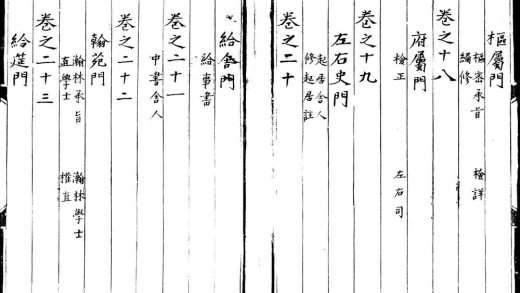 樞屬門
樞密承旨　檢詳
編修
卷之十八
府屬門
檢正　左右司
卷之十九
左右史門
起居舍人
修起居註
卷之二十
給舍門
給事書
卷之二十一
中書舍人
卷之二十二
翰苑門
瀚林承旨　瀚林學士
直學士　權直
卷之二十三
給筵門